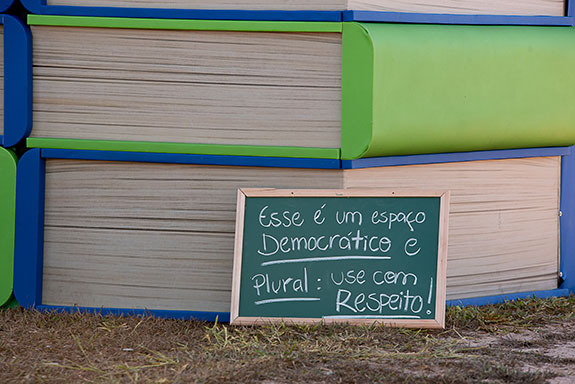 Esse é um espaço
Democrático e
Plural: use com
Respeito!